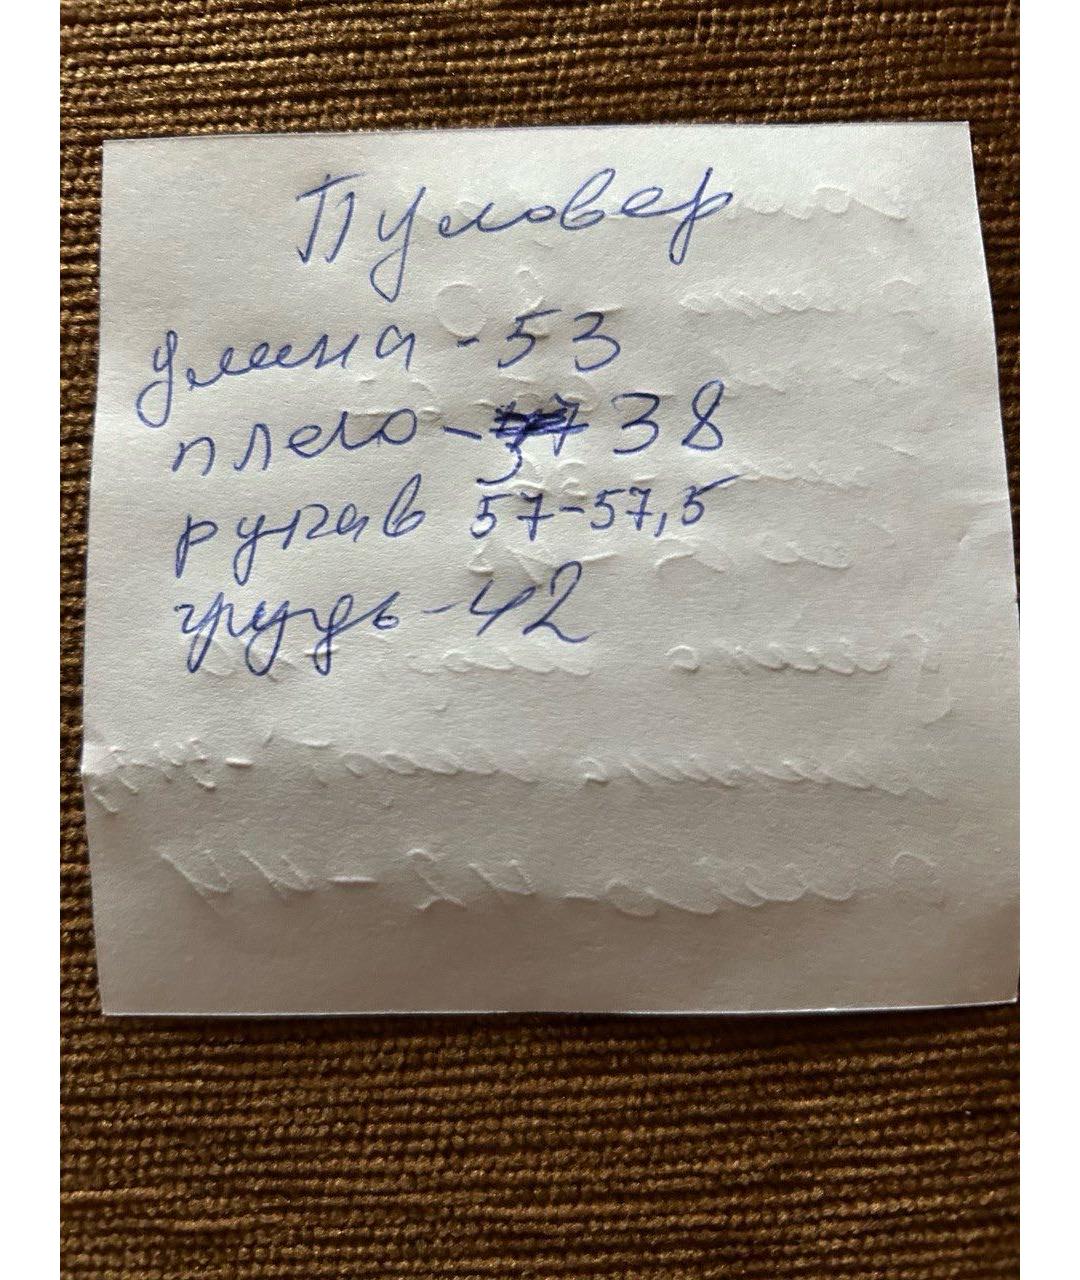 Пуловер
длина - 53
плечо - 38
рукав 57-57,5
грудь - 42